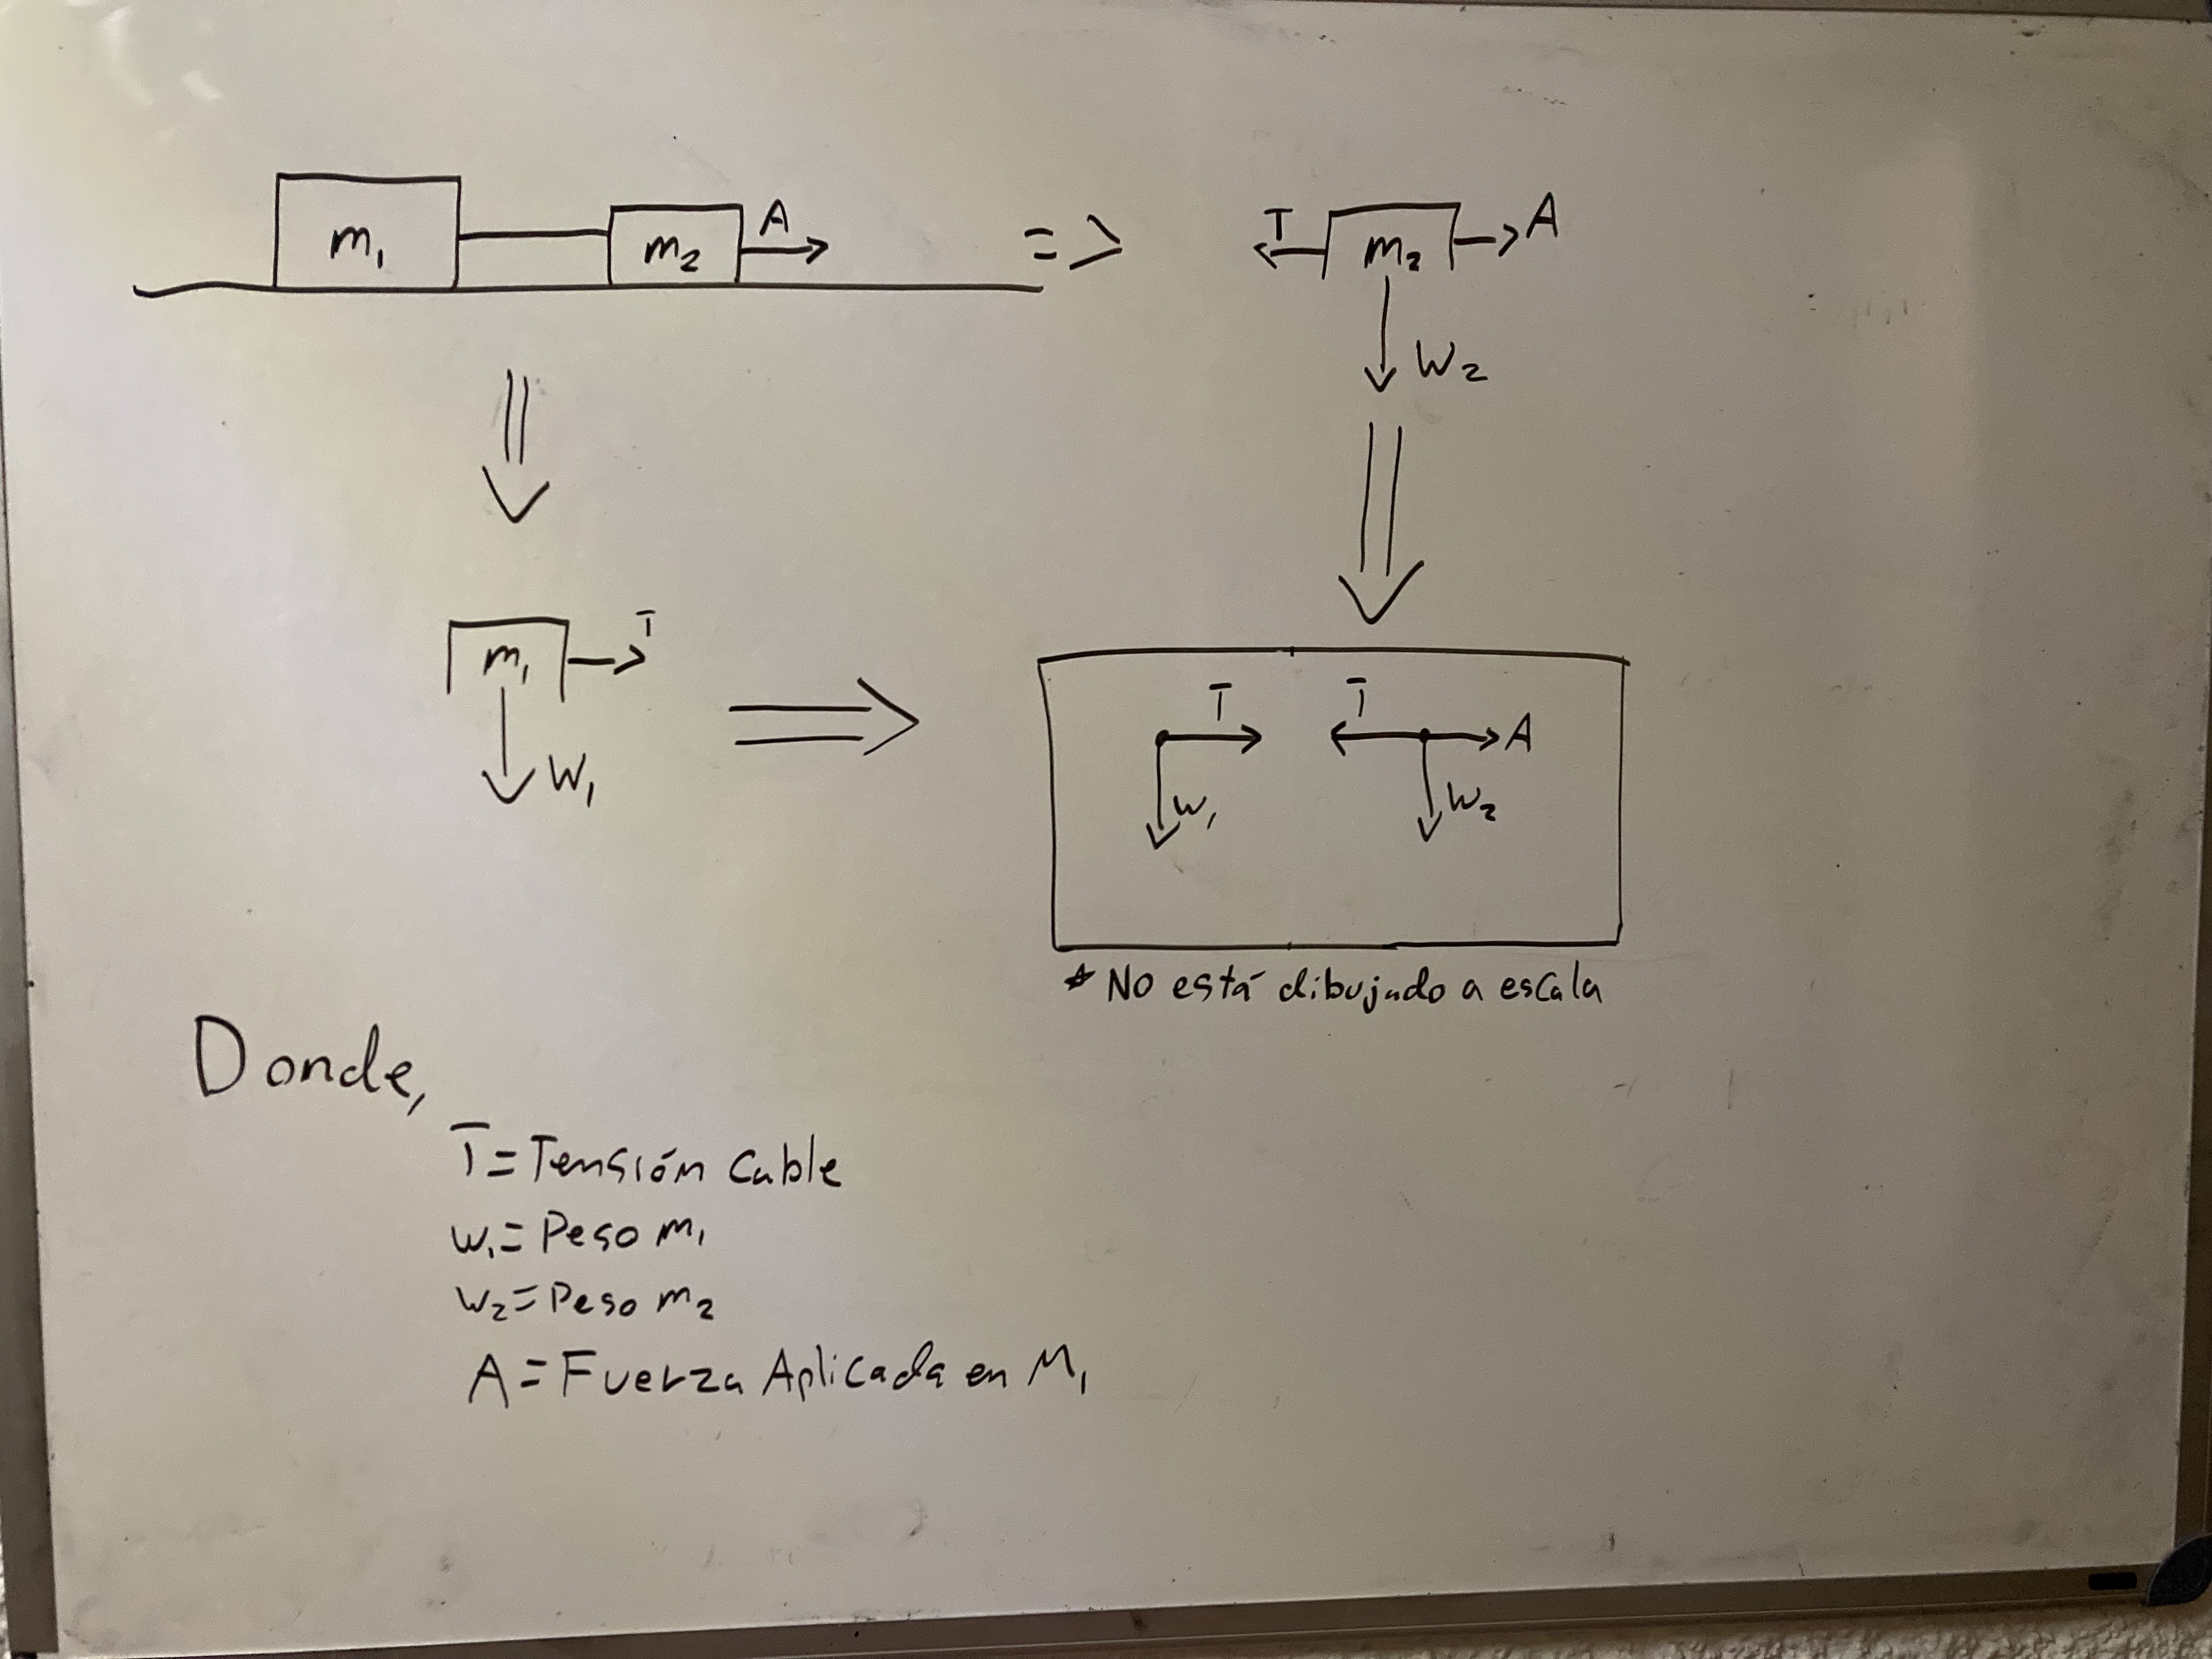 m₁
m₂
A
=>
T
m₂
A
W₂
m₁
T
W₁
T
W₁
T
A
W₂
* No está dibujado a escala
Donde,
T = Tensión Cable
W₁ = Peso m₁
W₂ = Peso m₂
A = Fuerza Aplicada en M₁